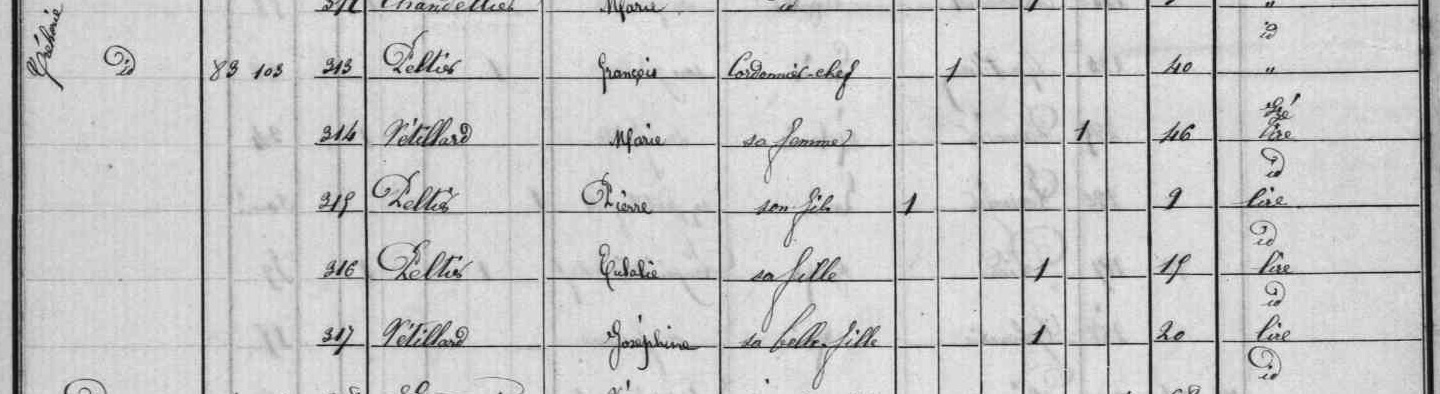 Marie id 1 "
id
id 83 103 313 Peltier François Cordonnier-chef 1 40 "
Gré
314 Vétillard Marie sa femme 1 46 lire
id
315 Peltier Pierre son fils 1 9 lire
id
316 Peltier Eulalie sa fille 1 15 lire
id
317 Vétillard Joséphine sa belle-fille 1 20 lire
id